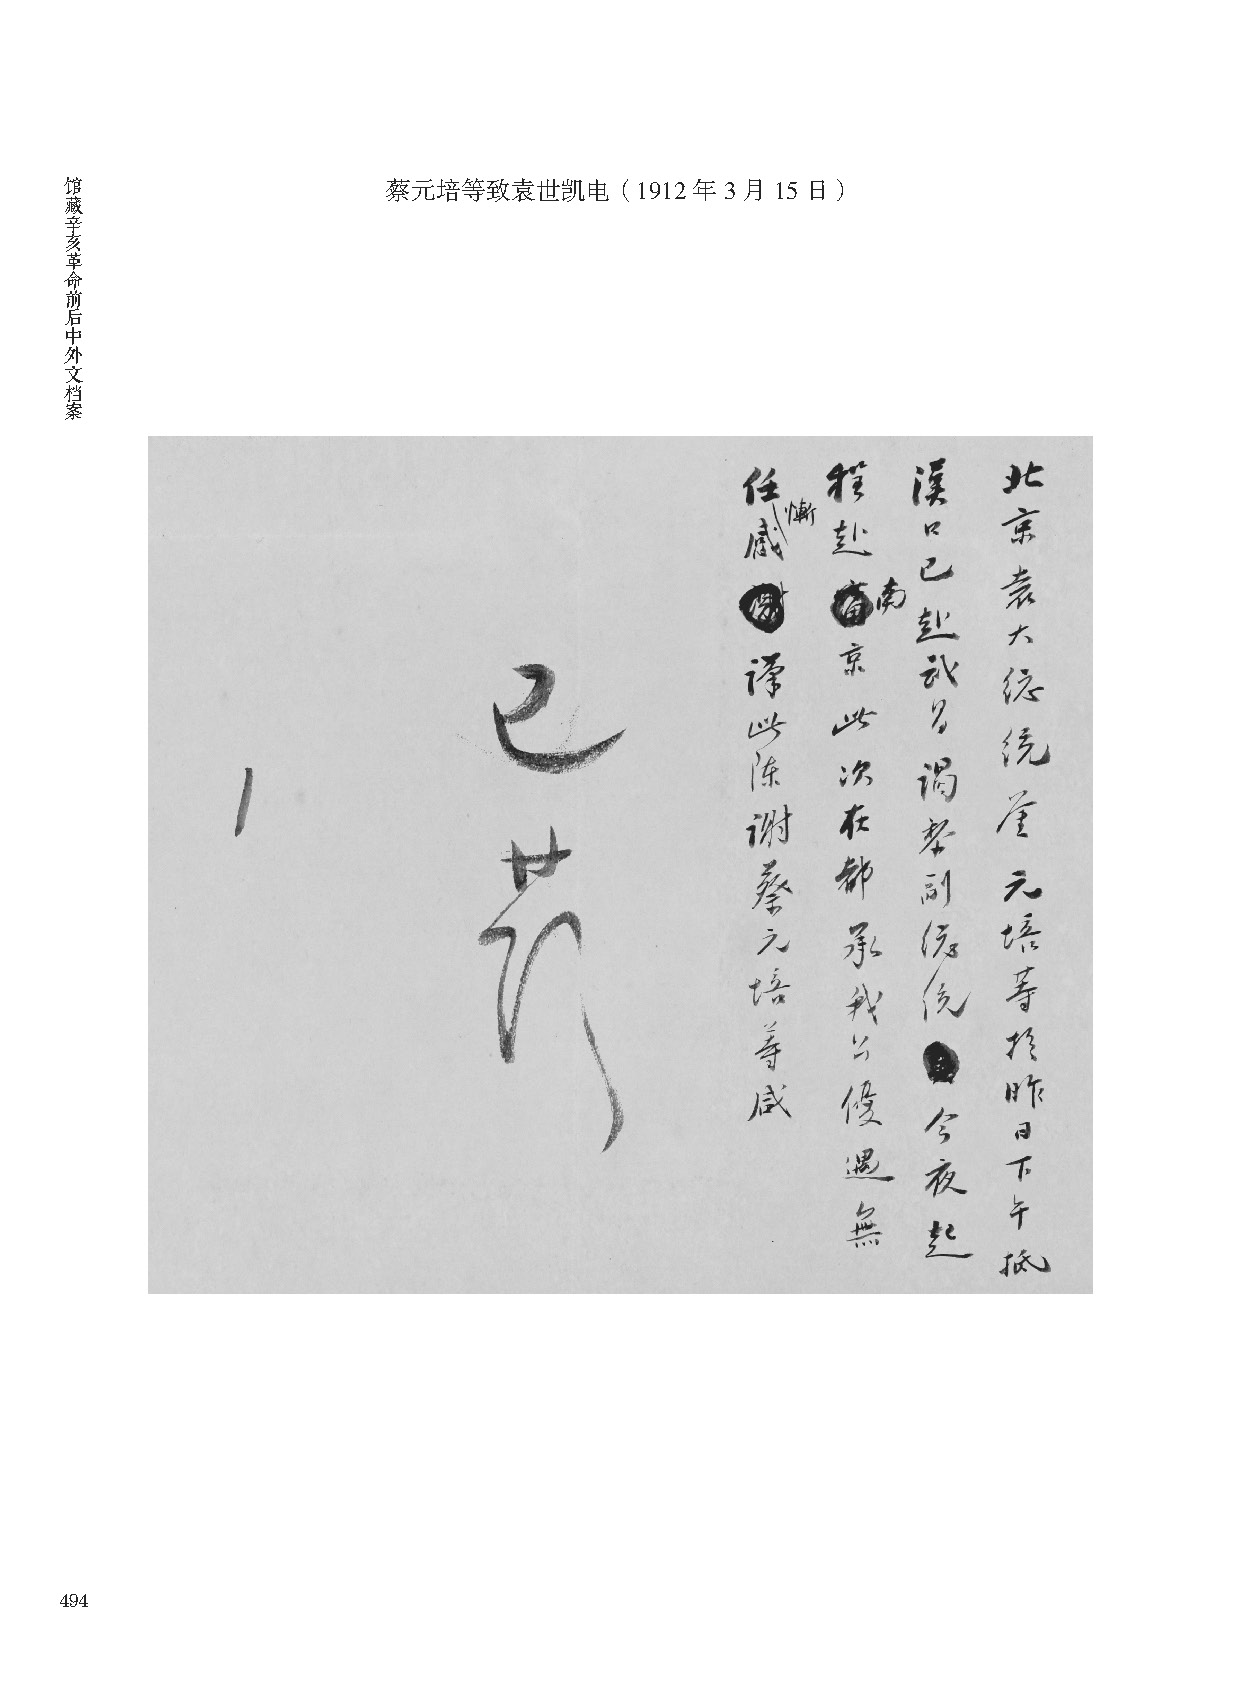 蔡元培等致袁世凯电（1912 年 3 月 15 日）
馆藏辛亥革命前后中外文档案
北京袁大總統鉴元培等於昨日下午抵
漢口已赴武昌謁黎副總統今夜起
程赴南京此次在都承我公優遇無
任慚感謹此陳謝蔡元培等咸
已發
494